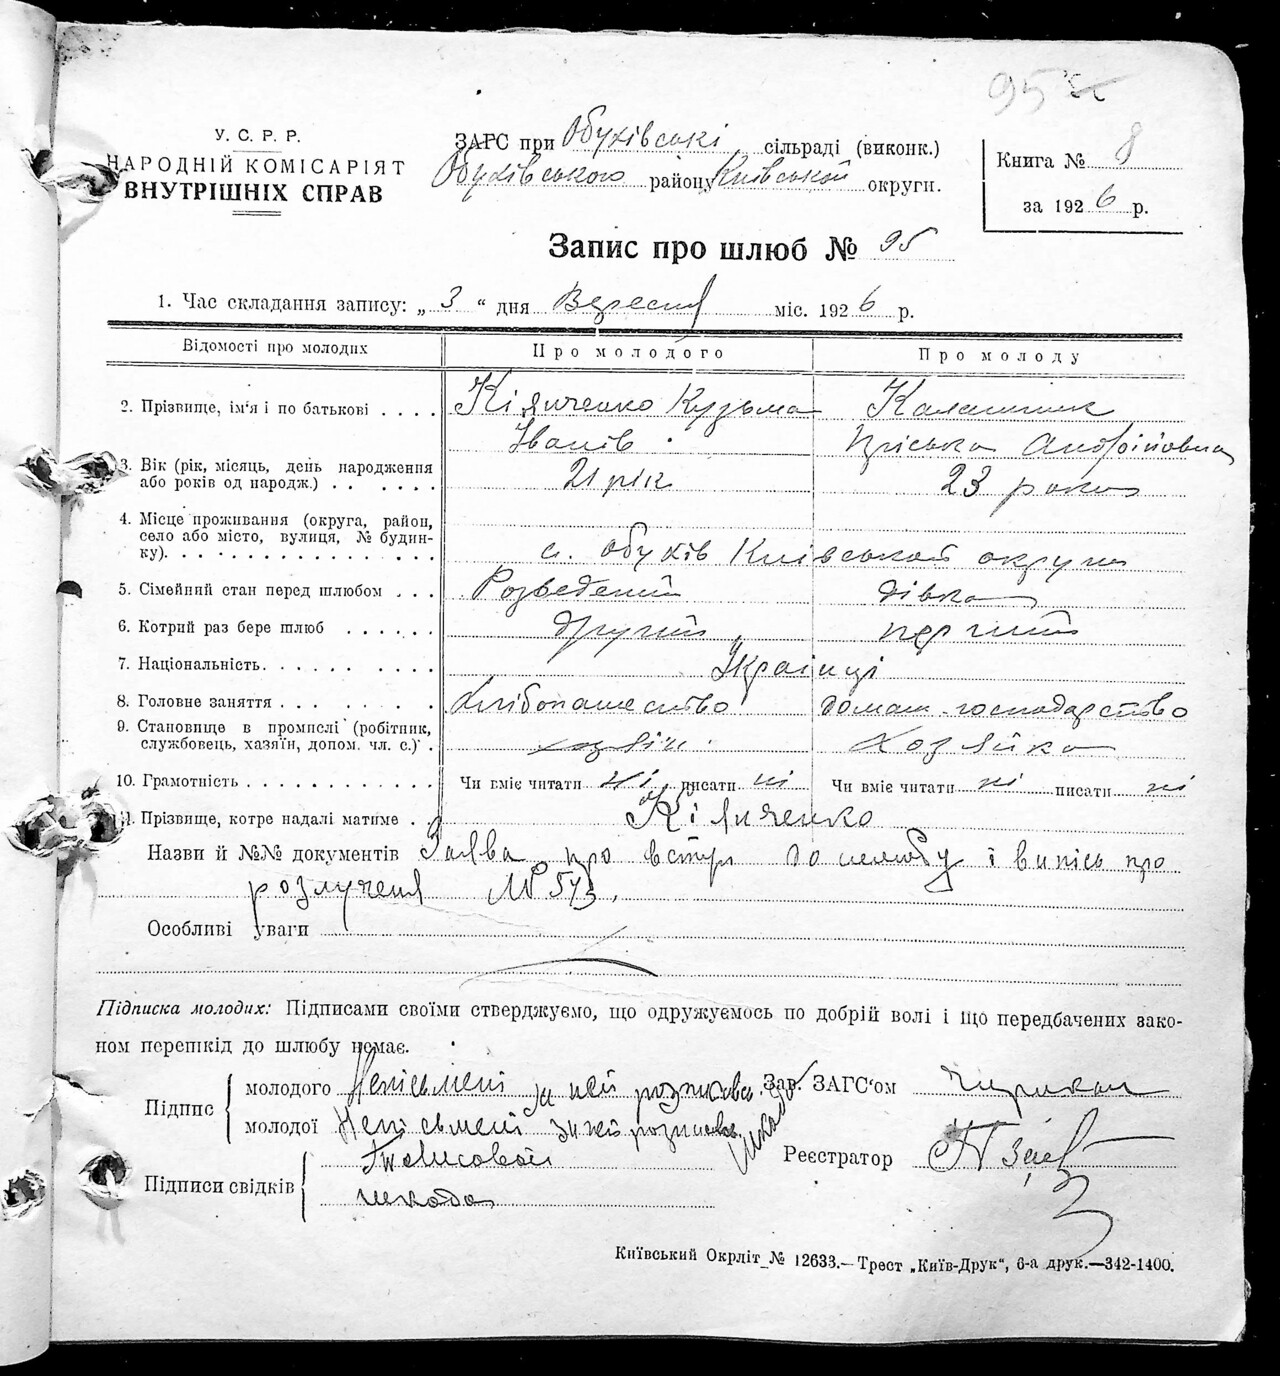 95
У. С. Р. Р.
НАРОДНІЙ КОМІСАРІЯТ
ВНУТРІШНІХ СПРАВ
ЗАГС при Обухівські сільраді (виконк.)
Обухівського району Київської округи.
Книга № 8
за 1926 р.
Запис про шлюб № 95
1. Час складання запису: „ 3 “ дня Вересня міс. 1926 р.
Відомості про молодих Про молодого Про молоду
2. Прізвище, ім'я і по батькові . . . . Кіяченко Кузьма Калашник
Іванів Пріська Андрійовна
3. Вік (рік, місяць, день народження
або років од народж.) . . . . . . 21 рік 23 роки
4. Місце проживання (округа, район,
село або місто, вулиця, № будин-
ку). . . . . . . . . . . . . . . . с. Обухів Київської округи
5. Сімейний стан перед шлюбом . . . Розведений дівка
6. Котрий раз бере шлюб . . . . . . другий перший
7. Національність. . . . . . . . . . . Українці
8. Головне заняття . . . . . . . . Хлібопашество домаш. господарство
9. Становище в промислі (робітник,
службовець, хазяїн, допом. чл. с.) . хозяїн Хозяйка
10. Грамотність . . . . . . . . . . . . Чи вміє читати ні писати ні Чи вміє читати ні писати ні
11. Прізвище, котре надалі матиме . . Кіяченко
Назви й №№ документів Заява про вступ до шлюбу і випісь про
розлучення №
Особливі уваги
Підписка молодих: Підписами своїми стверджуємо, що одружуємось по добрій волі і що передбачених зако-
ном перешкід до шлюбу немає.
Підпис
молодого Непісьмені за ней розписавсь
молодої Непісьмені за ней розписавсь
Зав. ЗАГС'ом
Реєстратор
Підписи свідків
Київський Окрліт № 12633.—Трест „Київ-Друк“, 6-а друк.—342-1400.